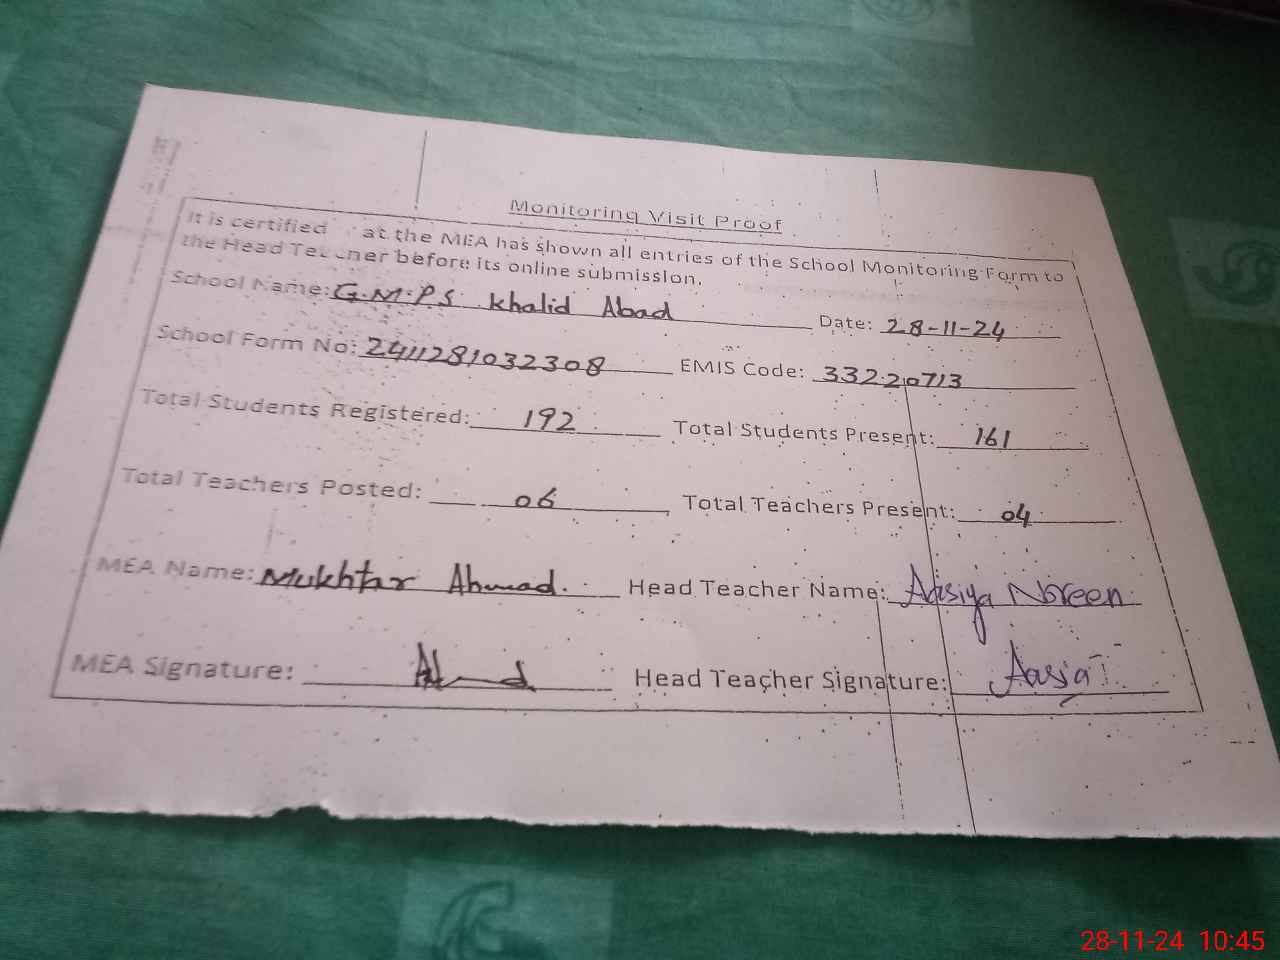 Monitoring Visit Proof
It is certified at the MEA has shown all entries of the School Monitoring Form to
the Head before its online submission.
School Name: G.M.P.S Khalid Abad Date: 28-11-24
School Form No: 2411281032308 EMIS Code: 33220713
Total Students Registered: 192 Total Students Present: 161
Total Teachers Posted: 06 Total Teachers Present: 04
MEA Name: Mukhtar Ahmad. Head Teacher Name: Aasiya Noreen
MEA Signature: Head Teacher Signature: Aasia
28-11-24 10:45